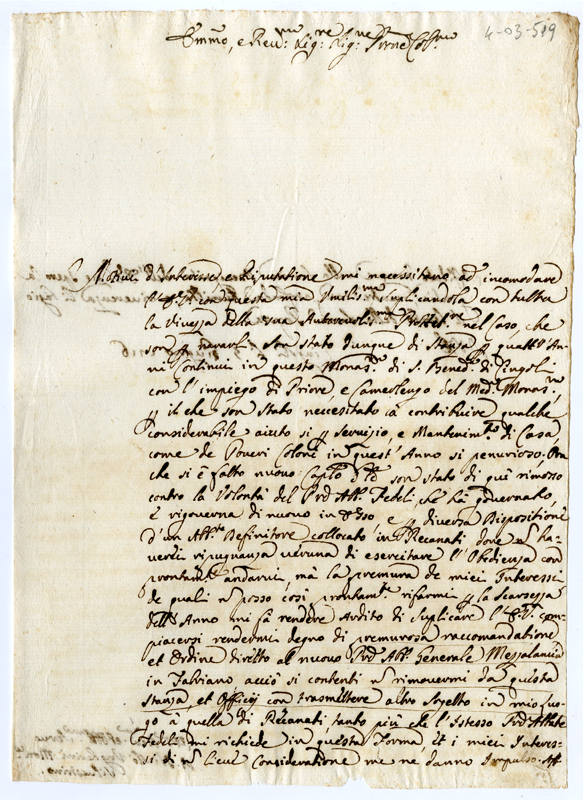 4-03-519
Emmo, e Revmo Sigre Sigre Prne Colmo
Motivi d'Interesse, e Riputatione mi necessitano ad incomodare
V. Em. con questa mia Umilisma, Suplicandola con tutta
la Vivezza della sua Autorevolisma Prottetne nel Caso, che
son p nararli. Son stato dunque di Stanza p quattr'An-
ni Continui in questo Monasro di S. Bened.o di Cingoli
con l'impiego di Priore, e Camerlengo del Medmo Monasro,
p il che son stato necesitato à contribuire qualche
considerabile aiuto si p servizio, e Mantenimto di Casa,
come de Poveri Coloni in quest'Anno si penurioso; Ora
che si è fatto nuovo Caplo son stato di qui rimosso
contro la Volontà del Prd Ab. Fedeli, che hà governato,
e rigoverna di nuovo in esso e p diversa Dispositione
d'un Abbte Definitore collocato in Recanati dove ha-
verei ripugnanza veruna di esercitare l'Obedienza con
prontamte andarvi, mà la premura de miei Interessi
de quali posso cosi prontamte rifarmi p la Scarsezza
dell'Anno mi fà rendere Ardito di Suplicare l'Em.V. com-
piacersi rendermi degno di premurosa raccomandatione
et Ordine diretto al nuovo Prd Ab. Generale Mezzalancia
in Fabriano acciò si contenti rimovermi da questa
Stanza, et Officij con trasmettere altro Sogetto in mio luo-
go à quella di Recanati, tanto più che l'Istesso Prd Abbate
Fedeli mi richiede in questa Forma, Et i miei Interes-
si di Considerationi me ne danno Impulso. Aff